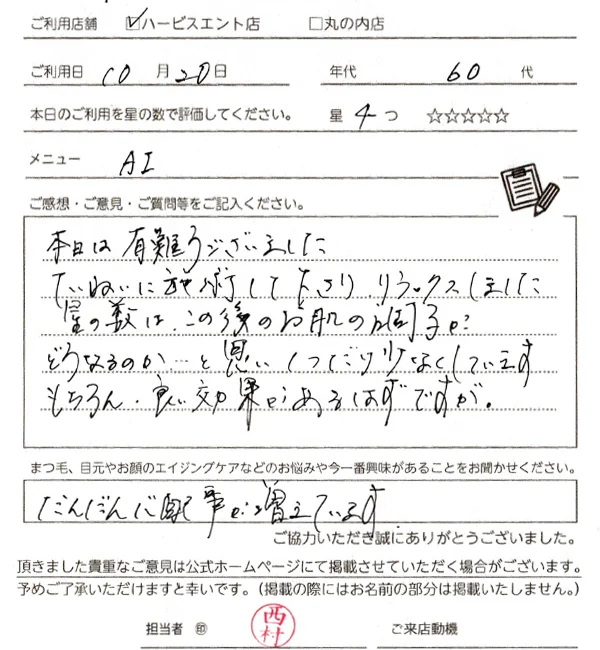 ご利用店舗 ☑ハービスエント店 □丸の内店
ご利用日 10月20日 年代 60代
本日のご利用を星の数で評価してください。 星4つ ☆☆☆☆☆
メニュー AI
ご感想・ご意見・ご質問等をご記入ください。
本日は有難うございました
ていねいに施術して下さりリラックスしました
星の数は、この後のお肌の調子が
どうなるのか…と思い1つだけ少なくしています
もちろん、良い効果があるはずですが。
まつ毛、目元やお顔のエイジングケアなどのお悩みや今一番興味があることをお聞かせください。
だんだん心配事が増えています
ご協力いただき誠にありがとうございました。
頂きました貴重なご意見は公式ホームページにて掲載させていただく場合がございます。
予めご了承いただけますと幸いです。(掲載の際にはお名前の部分は掲載いたしません。)
担当者 ㊞ 西村 ご来店動機